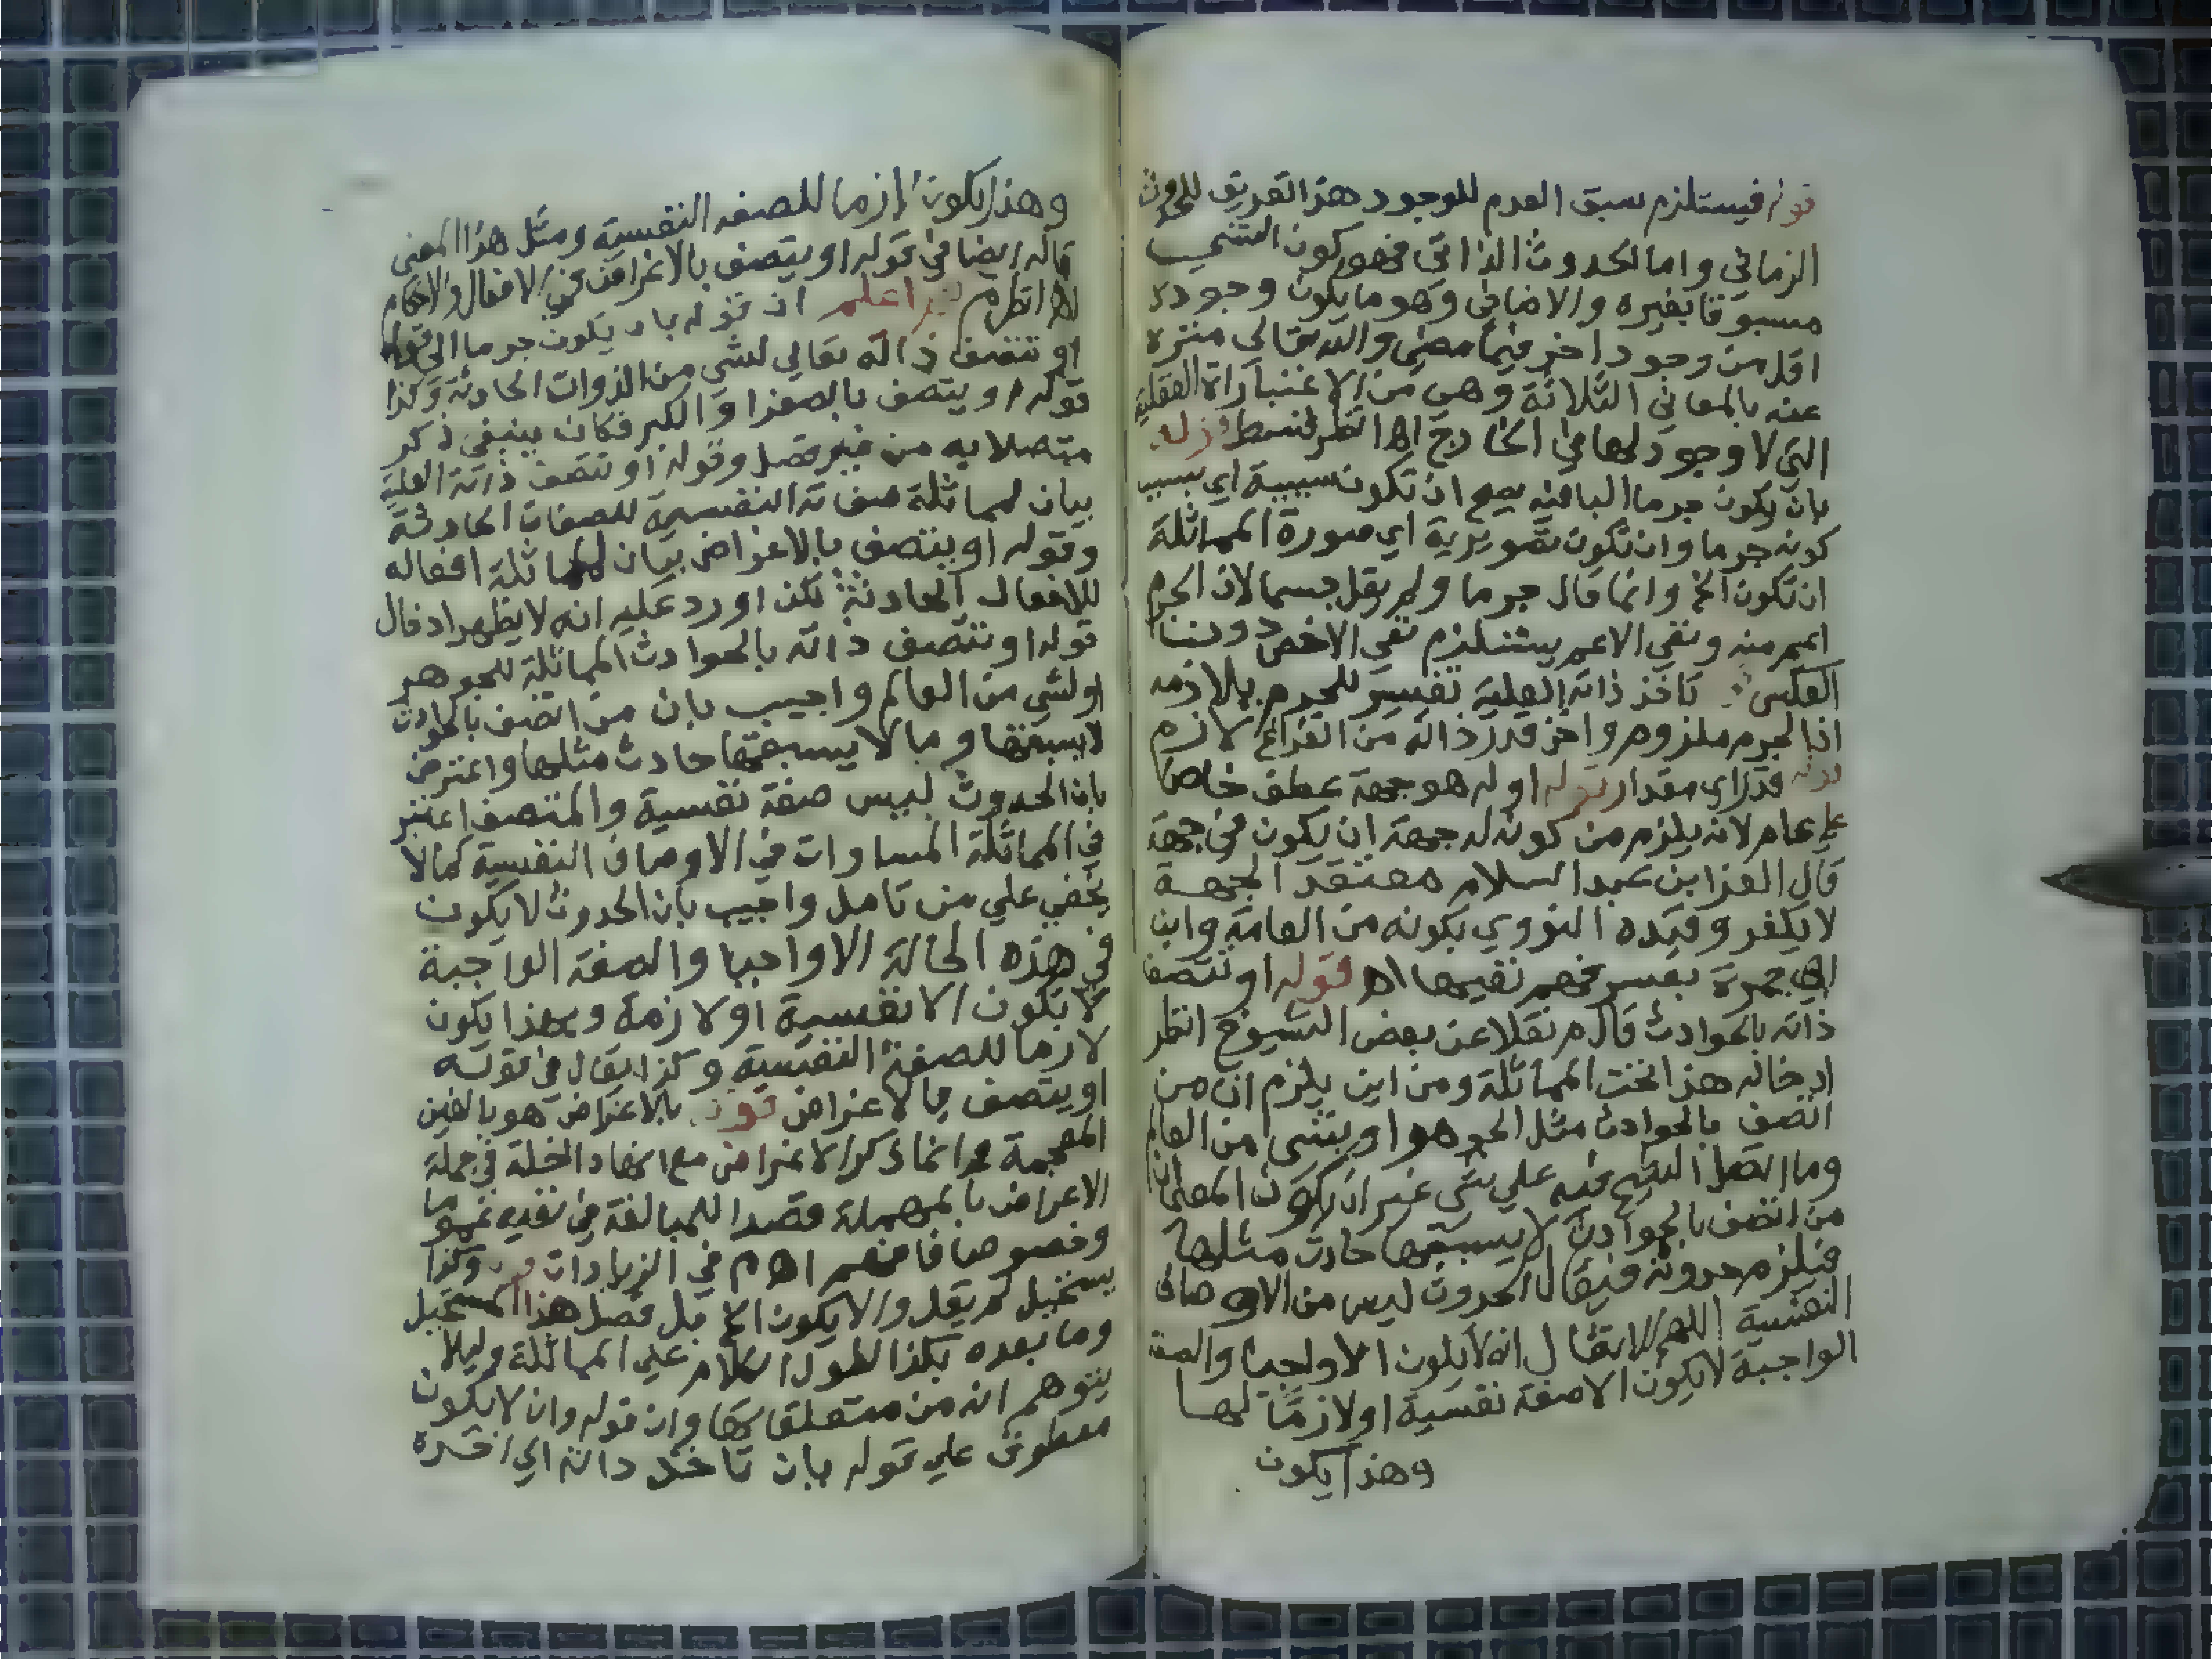 قوله فيستلزم سبق العدم للوجود هذا تعريف للحدوث
الزماني واما الحدوث الذاتي فهو كون الشي
مسبوقا بغيره والاضافي وهو ما يكون وجوده
اقل من وجود اخر فيما مضي والله تعالى منزه
عنه بالمعاني الثلاثة وهي من الاعتبارات العقلية
التي لا وجود لها في الخارج اه انظر قوله
بان يكون جرما البا فيه يصح ان تكون سببية اي بسبب
كونه جرما وان تكون تصويرية اي صورة المماثلة
ان تكون الخ وانما قال جرما ولم يقل جسما لان الجرم
اعم منه ونفي الاعم يستلزم نفي الاخص دون
العكس تاخذ ذاته العلية تفسير للجرم بلازمه
اذ الجرم ملزوم واخذ قدر ذاته من الفراغ لازم
قوله قدرا اي مقدار قوله او له هو جهة عطف خاص
علي عام لانه يلزم من كونه له جهة ان يكون في جهة
قال العز ابن عبد السلام معتقد الجهة
لا يكفر وقيده النووي بكونه من العامة وابن
ابي جمرة بعسر فهم نفيها اه قوله او تتصف
ذاته بالحوادث قال م نقلا عن بعض الشيوخ انظر
ادخاله هذا تحت المماثلة ومن اين يلزم ان من
اتصف بالحوادث مثل الجوهر او بشي من العالم
وما اتصل الشيخ فيه علي شي غير ان يكون المعني ان
من اتصف بالحوادث لا يسبقها حادث مثلها
فيلزم حدوثه فيقال الحدوث ليس من الاوصاف
النفسية اللهم الا ان يقال انه لا يكون الا واجبا والصفة
الواجبة لا تكون الا صفة نفسية او لازما لها
وهذا يكون
وهذا يكون لازما للصفة النفسية ومثل هذا المعني
قاله ايضا في قوله او يتصف بالاغراض في الافعال والاحكام
اه انظر م ثم اعلم ان قوله بان يكون جرما الي قوله
او تتصف ذاته تعالي لشي من الذوات الحادثة وكذا
قوله او يتصف بالصغر او الكبر فكان ينبغي ذكره
متصلا به من غير فصل وقوله او تتصف ذاته العلية
بيان لمماثلة صفاته النفسية للصفات الحادثة
وقوله او يتصف بالاغراض بيان لمماثلة افعاله
للافعال الحادثة لكن اورد عليه انه لا يظهر ادخال
قوله او تتصف ذاته بالحوادث المماثلة للجوهر
او لشي من العالم واجيب بان من اتصف بالحوادث
لا يسبقها وما لا يسبقها حادث مثلها واعترض
بان الحدوث ليس صفة نفسية والمتصف اعتبر
في المماثلة المساوات في الاوصاف النفسية كما لا
يخفي علي من تامل واجيب بان الحدوث لا يكون
في هذه الحالة الا واجبا والصفة الواجبة
لا تكون الا نفسية او لازمة وبهذا يكون
لازما للصفة النفسية وكذا يقال في قوله
او يتصف بالاغراض قوله بالاغراض هو بالغين
المعجمة وانما ذكر الاغراض مع انها داخلة في جملة
الاعراض بالمهملة قصدا للمبالغة في نفيه عموما
وخصوصا فافهم اه م في الزيادات قوله وكذا
يستحيل لم يقل والا يكون الخ بل فصل هذا المستحيل
وما بعده بكذا لطول الكلام علي المماثلة وليلا
يتوهم انه من متعلق بها وان قوله وان لا يكون
معطوف علي قوله بان تاخذ ذاته الي اخره